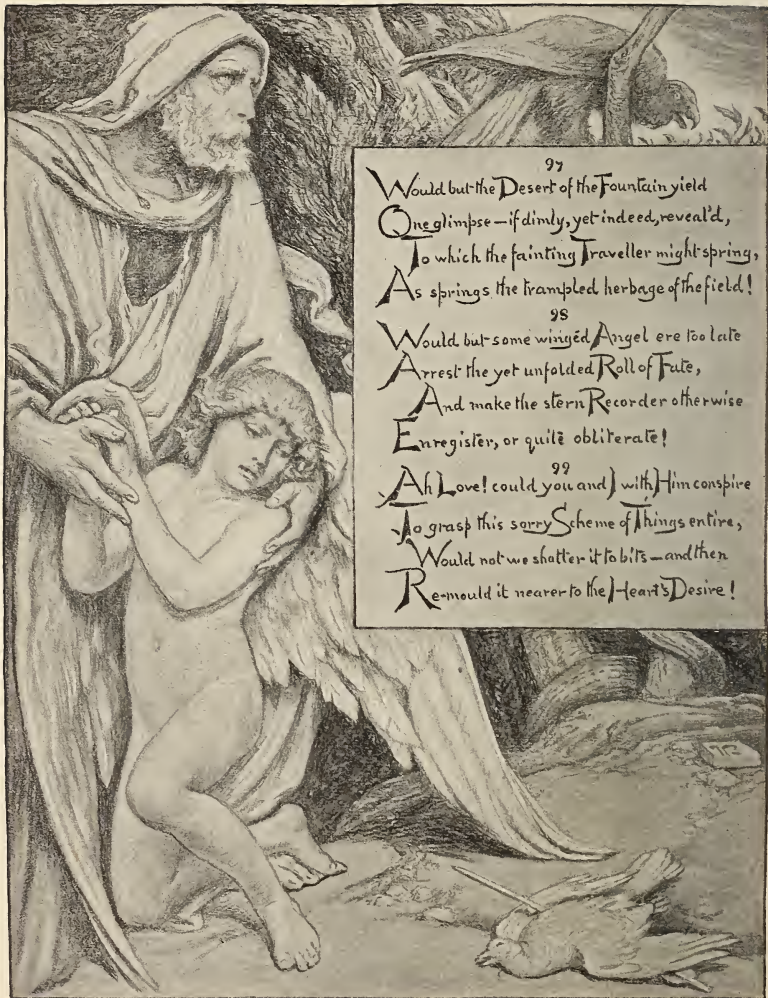 97
Would but the Desert of the Fountain yield
One glimpse—if dimly, yet indeed, reveal'd,
To which the fainting Traveller might spring,
As springs the trampled herbage of the field!
98
Would but some wingéd Angel ere too late
Arrest the yet unfolded Roll of Fate,
And make the stern Recorder otherwise
Enregister, or quite obliterate!
99
Ah Love! could you and I with Him conspire
To grasp this sorry Scheme of Things entire,
Would not we shatter it to bits—and then
Re-mould it nearer to the Heart's Desire!